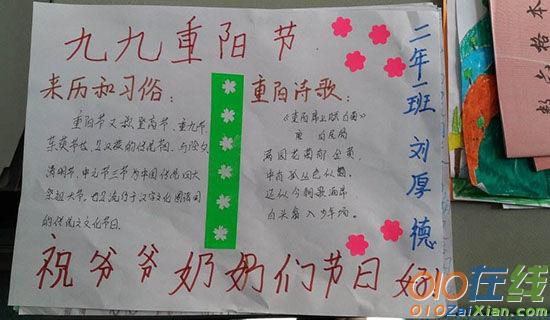 九九重阳节
来历和习俗:
重阳节又叫登高节、重九节、
茱萸节,也是汉族的传统节日,与除夕
清明节、中元节三节为中国传统四大
祭祖大节,也是流行于汉字文化圈诸国
的传统文化节日。
重阳诗歌:
《重阳席上赋白菊》
唐 白居易
满园花菊郁金黄,
中有孤丛色似霜。
还似今朝歌酒席
白头翁入少年场。
二年一班 刘厚德
祝爷爷奶奶们节日好
010在线
010ZaiXian.com